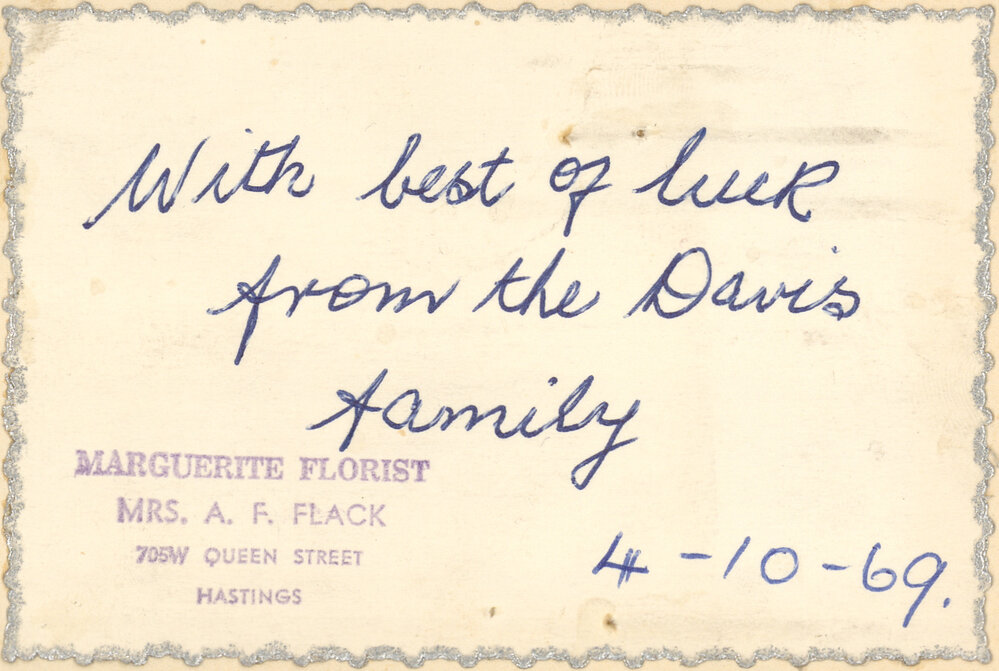 With best of luck
from the Davis
family
MARGUERITE FLORIST
MRS. A. F. FLACK
705W QUEEN STREET
HASTINGS
4-10-69.